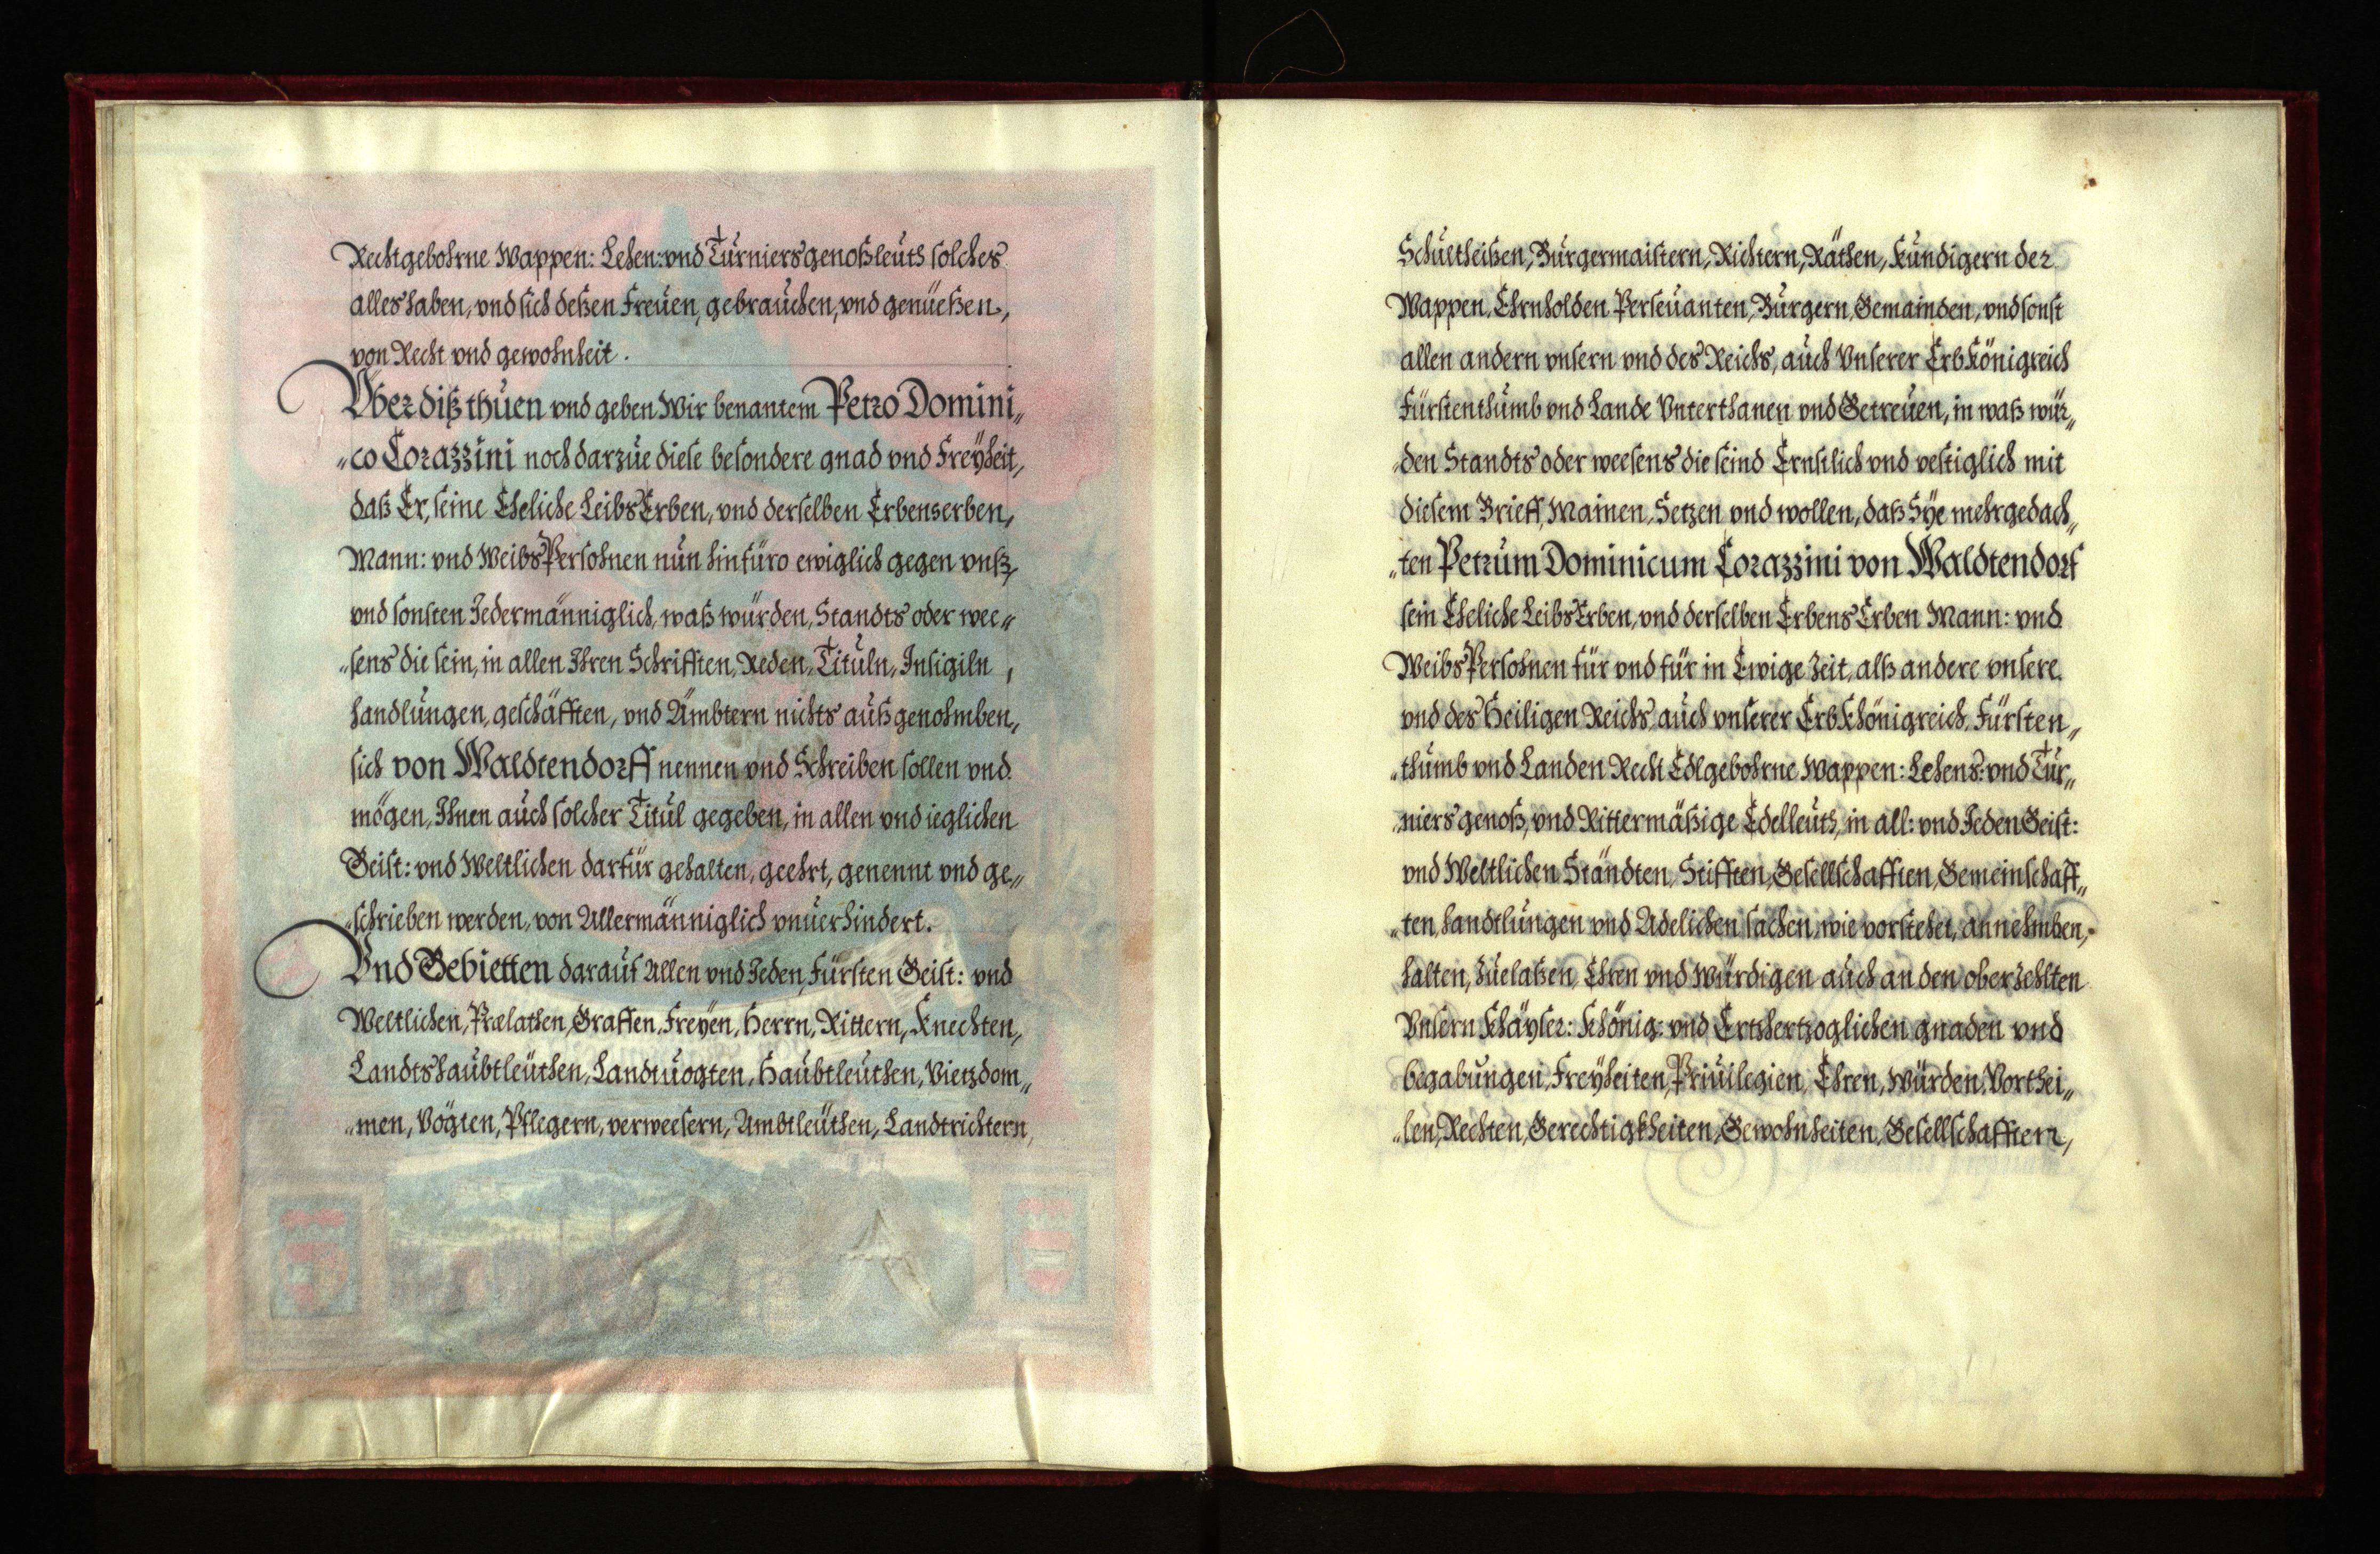 Rechtgebohrne Wappen: Lehen: vnd Turniersgenoßleuth solches
alles haben, vnd sich deßen Freuen, gebrauchen, vnd genüeßen,
von Recht vnd gewohnheit.
Vber diß thuen vnd geben Wir benantem Petro Domini„
„co Corazzini noch darzue diese besondere gnad vnd Freÿheit,
daß Er, seine Eheliche LeibsErben, vnd derselben Erbenserben,
Mann: vnd WeibsPersohnen nun hinfüro ewiglich gegen vnß,
vnd sonsten Jedermänniglich, waß würden, Standts oder wee„
„sens die sein, in allen Ihren Schrifften, Reden, Tituln, Insigiln,
handlungen, geschäfften, vnd Ämbtern nichts außgenohmben,
sich von Waldtendorff nennen vnd Schreiben sollen vnd
mögen, Ihnen auch solcher Titul gegeben, in allen vnd ieglichen
Geist: vnd Weltlichen darfür gehalten, geehrt, genennt vnd ge„
„schrieben werden, von Allermänniglich vnuerhindert.
Vnd Gebietten darauf Allen vnd Jeden, Fürsten Geist: vnd
Weltlichen, Prælathen, Graffen, Freyen, Herrn, Rittern, Knechten,
Landtshaubtleuthen, Landtuogten, Haubtleuthen, Vietzdom„
„men, Vögten, Pflegern, verweesern, Ambtleuthen, Landtrichtern,
Schultheißen, Burgermaistern, Richtern, Räthen, Kundigern der
Wappen, Ehrnholden Perseuanten, Burgern, Gemainden, vnd sonst
allen andern vnsern vnd des Reichs, auch Vnserer ErbKönigreich
Fürstenthumb vnd Lande Vnterthanen vnd Getreuen, in waß wür„
„den Standts oder weesens die seind Ernstlich vnd vestiglich mit
diesem Brieff, Mainen, Setzen vnd wollen, daß Sÿe mehrgedach„
„ten Petrum Dominicum Corazzini von Waldtendorf
sein Eheliche LeibsErben, vnd derselben ErbensErben Mann: vnd
WeibsPersohnen für vnd für in Ewige Zeit, alß andere vnsere
vnd des Heiligen Reichs, auch vnserer ErbKhönigreich, Fürsten„
„thumb vnd Landen Recht Edlgebohrne Wappen: Lehens: vnd Tur„
„niersgenoß, vnd Rittermäßige Edelleuth, in all: vnd Jeden Geist:
vnd Weltlichen Ständten, Stifften, Gesellschafften, Gemeinschaff„
„ten, handtlungen vnd Adelichen sachen, wie vorstehet, annehmben,
halten, zuelaßen, Ehren vnd würdigen auch an den oberzehlten
Vnsern Khäyser: Khönig: vnd Ertzhertzoglichen gnaden vnd
begabungen, Freÿheiten, Priuilegien, Ehren, würden, Vorthei„
„len, Rechten, Gerechtigkheiten, Gewohnheiten, Gesellschafften,